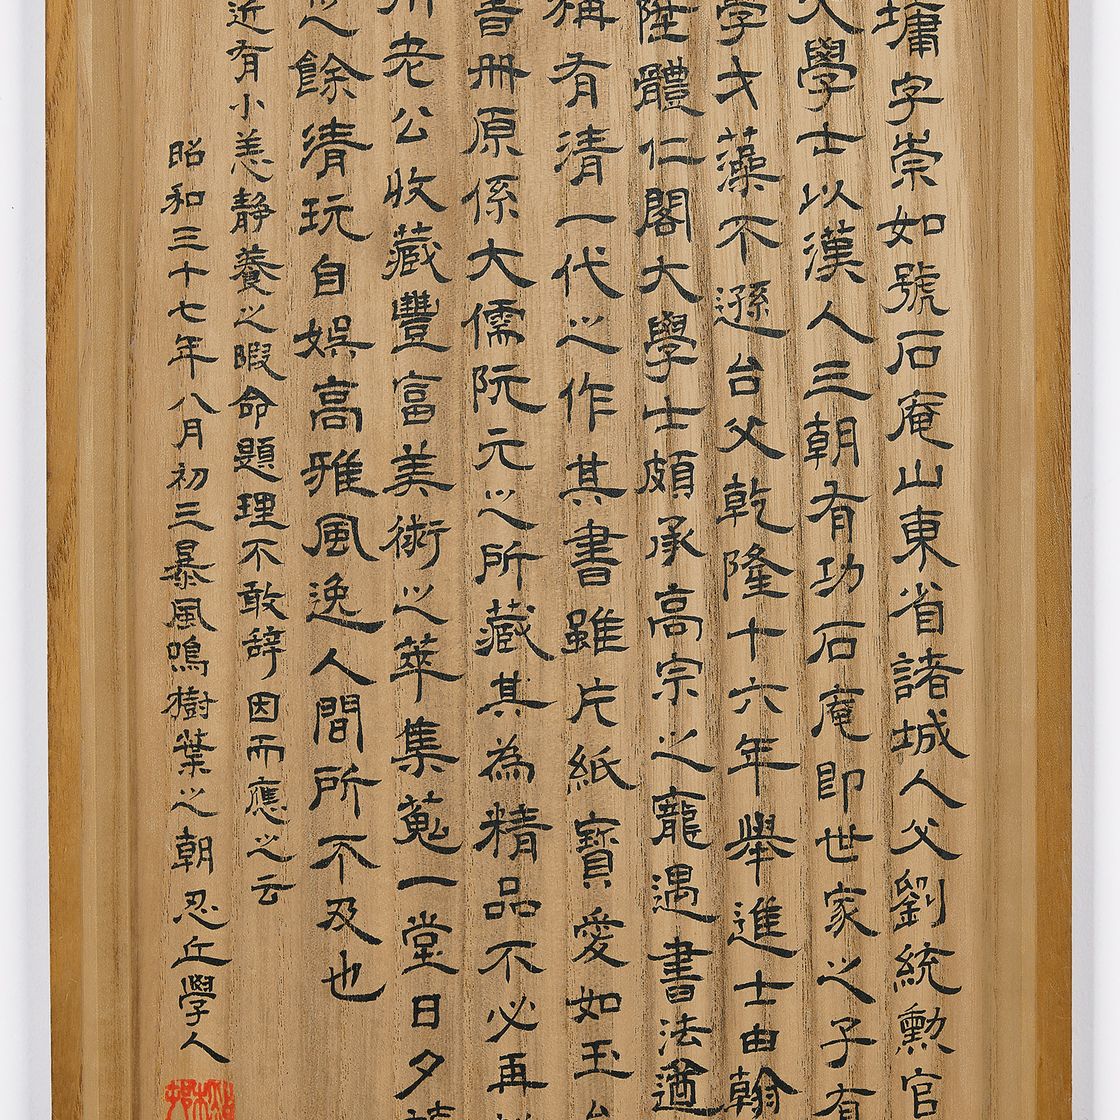 墉字崇如號石庵山東省諸城人父劉統勲官
大學士以漢人三朝有功石庵即世家之子有
學才藻不遜台父乾隆十六年舉進士由翰
陞體仁閣大學士頗承高宗之寵遇書法遒
稱有清一代之作其書雖片紙寶愛如玉
書册原係大儒阮元之所藏其為精品不必再
老公收藏豐富美術之萃集蒐一堂日夕
人餘清玩自娯高雅風逸人間所不及也
近有小恙靜養之暇命題理不敢辞因而應之云
昭和三十七年八月初三暴風鳴樹葉之朝忍丘學人